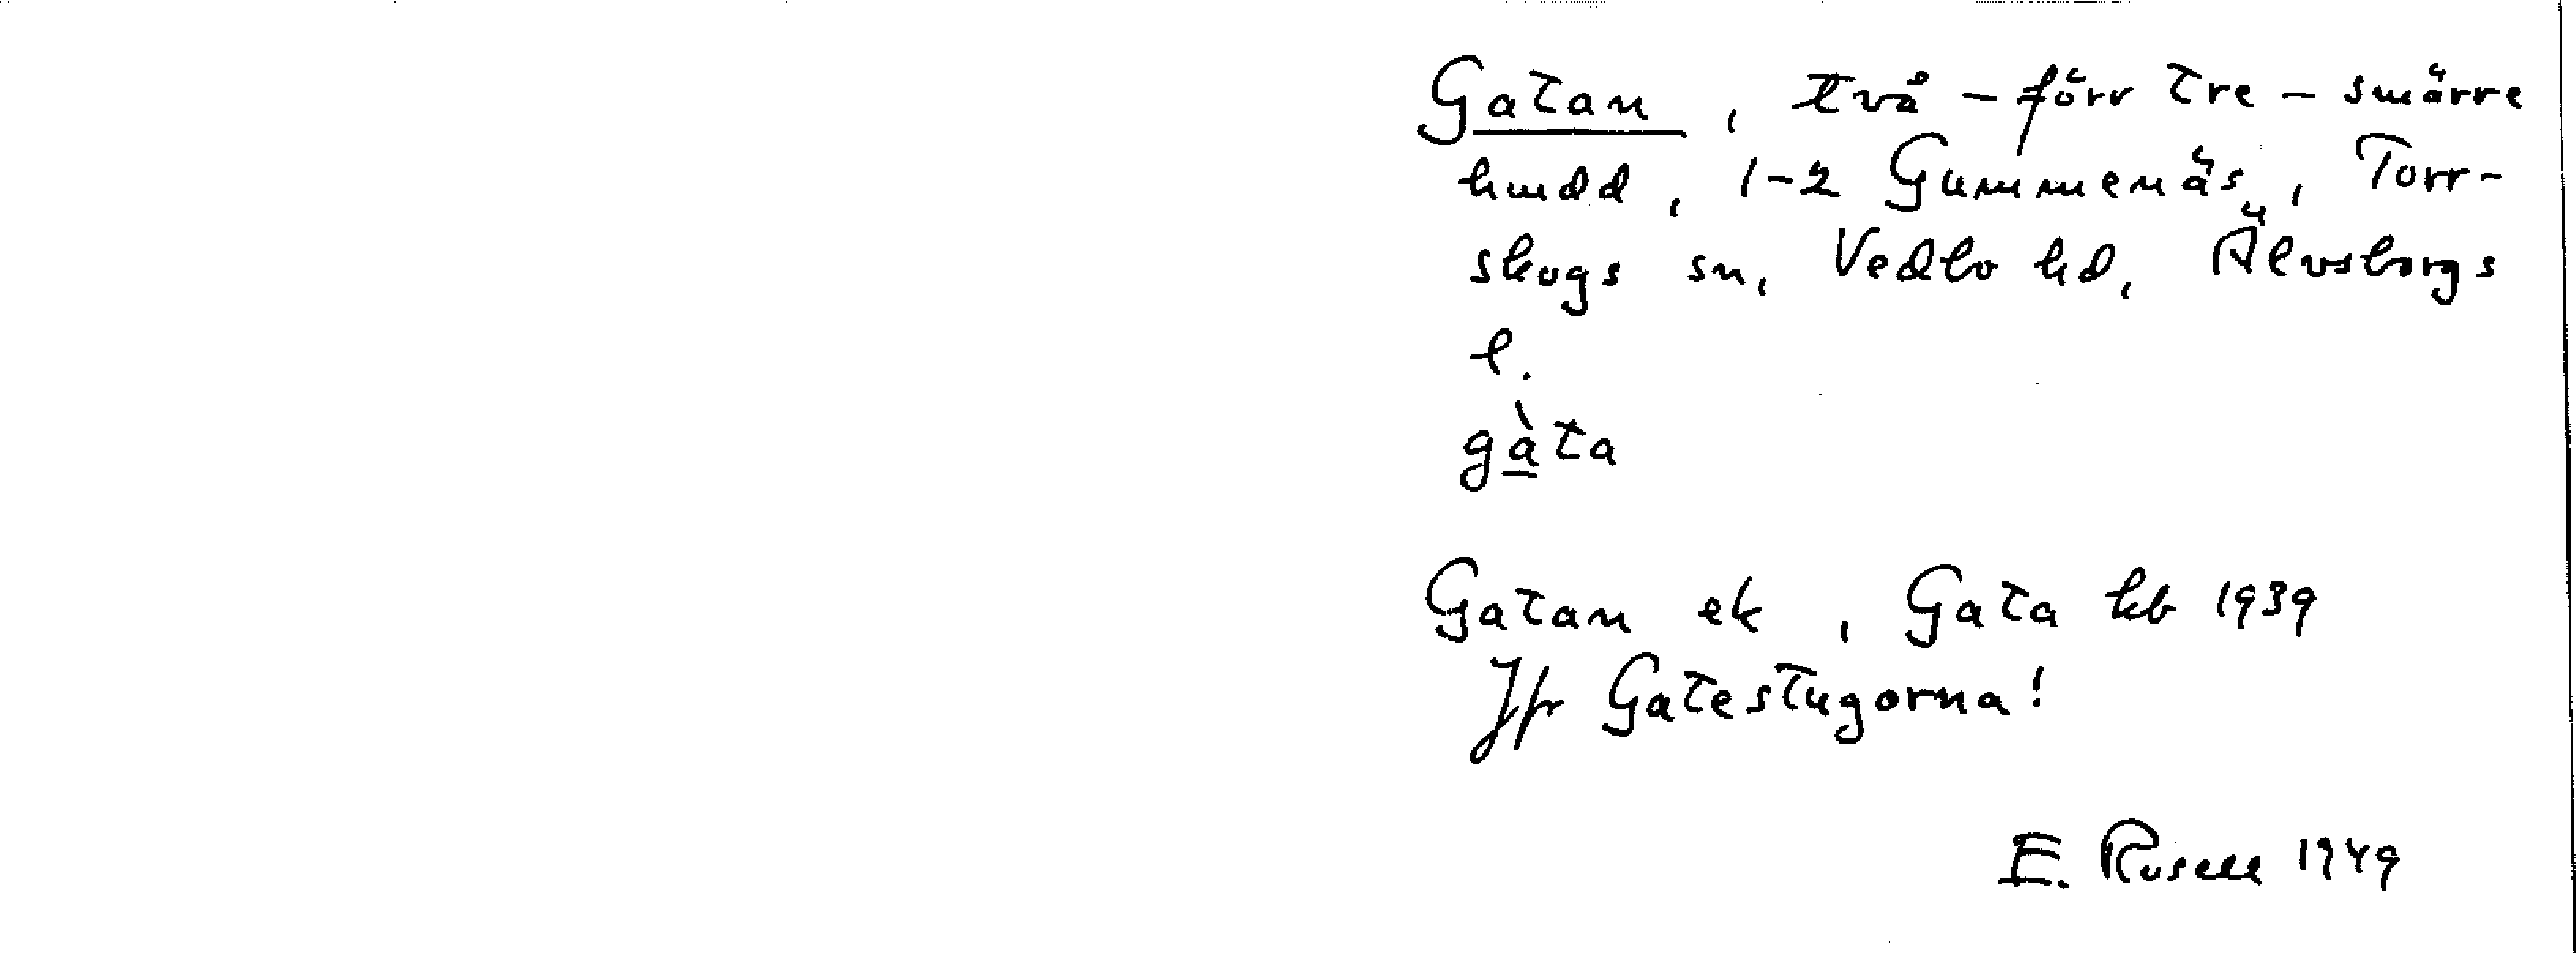 Gatan, två - förr tre - smärre
hmdd, 1-2 Gummenäs, Torr-
skogs sn, Vedbo hd, Älvsborgs
l.
gàta
Gatan ek, Gata kb 1939
Jfr Gatestugorna!
E. Rosell 1949